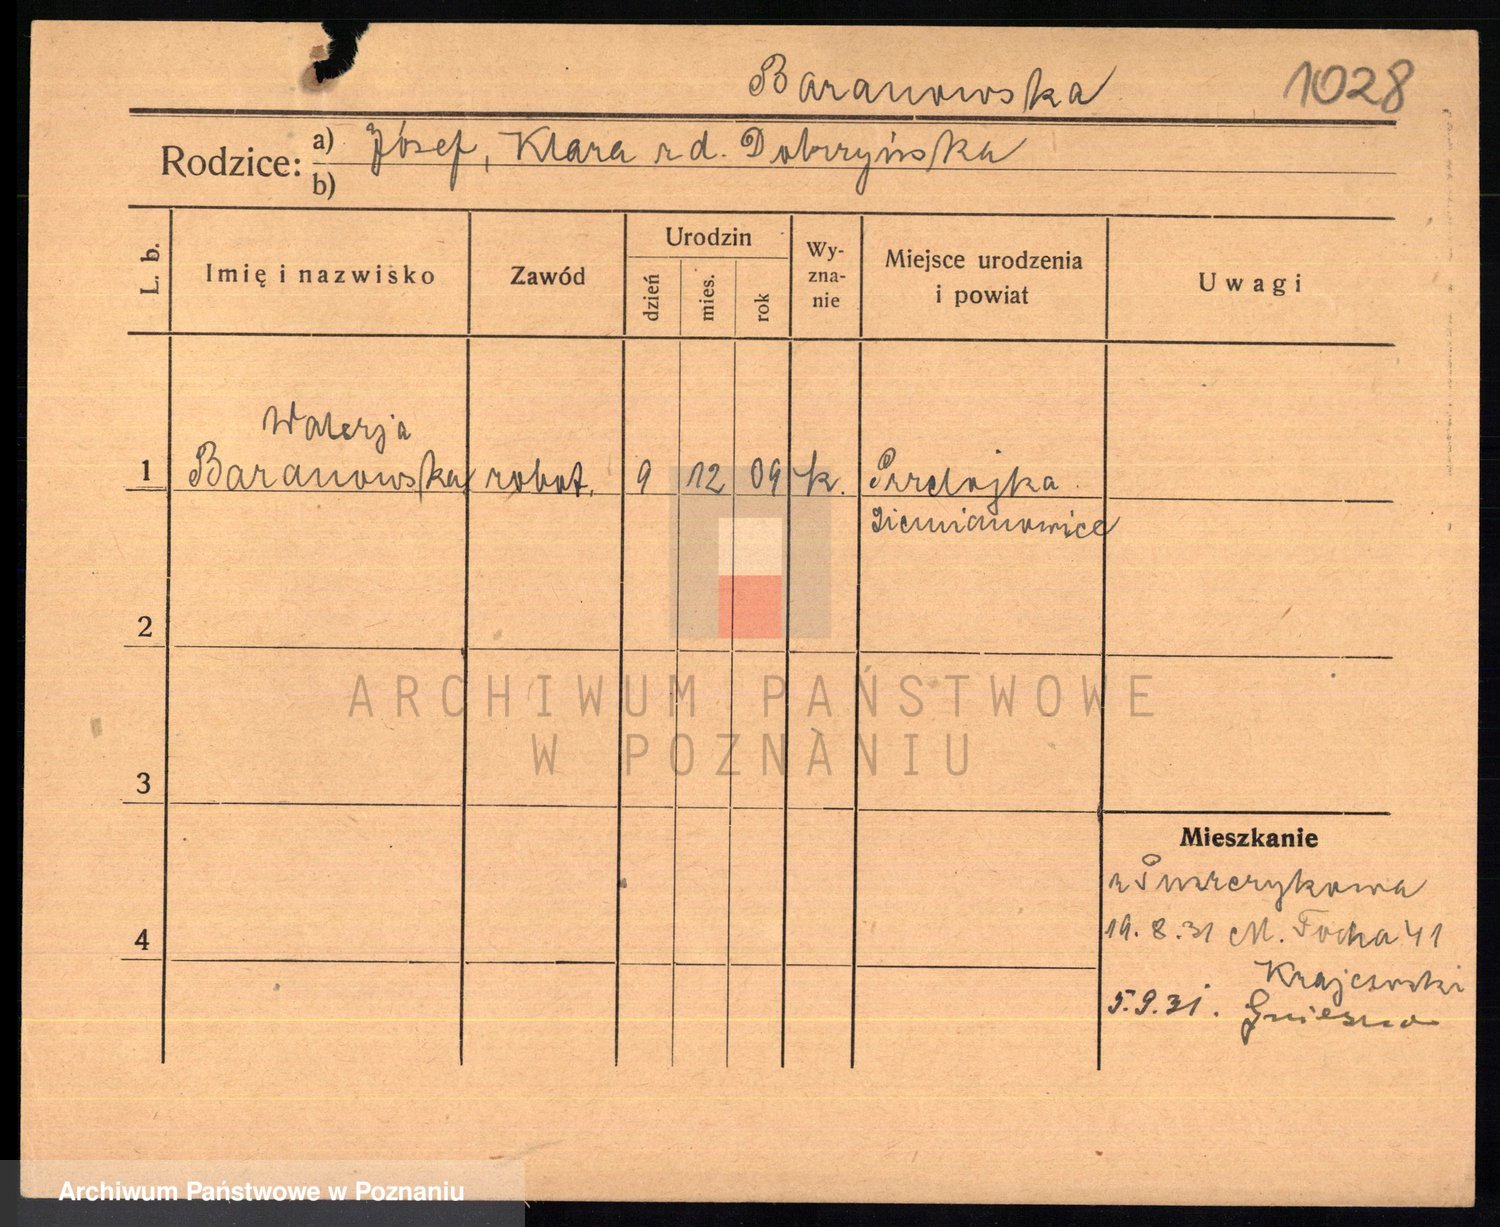 Baranowska 1028
Rodzice: a) Józef, Klara zd. Dobrzyńska
b)
L. b. Imię i nazwisko Zawód Urodzin dzień mies. rok Wyznanie Miejsce urodzenia i powiat Uwagi
Walerja
1 Baranowska robot. 9 12 09 k. Przelajka
Siemianowice
2
ARCHIWUM PAŃSTWOWE
W POZNANIU
3
Mieszkanie
z Puszczykowa
4
19.8.31 M. Focha 41
Krajewski
5.9.31. Gniezno
Archiwum Państwowe w Poznaniu